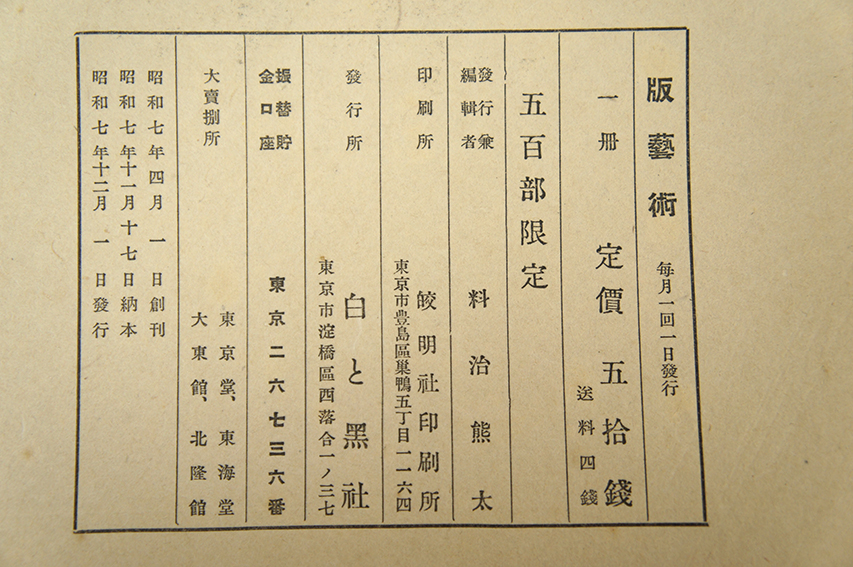 版藝術 每月一回一日發行
一冊 定價 五拾錢
送料四錢
五百部限定
發行兼
編輯者 料治熊太
印刷所 皎明社印刷所
東京市豊島區巢鴨五丁目一一六四
發行所 白と黑社
東京市淀橋區西落合一ノ三七
振替貯
金口座 東京二六七三六番
大賣捌所 東京堂、東海堂
大東館、北隆館
昭和七年四月一日創刊
昭和七年十一月十七日納本
昭和七年十二月一日發行